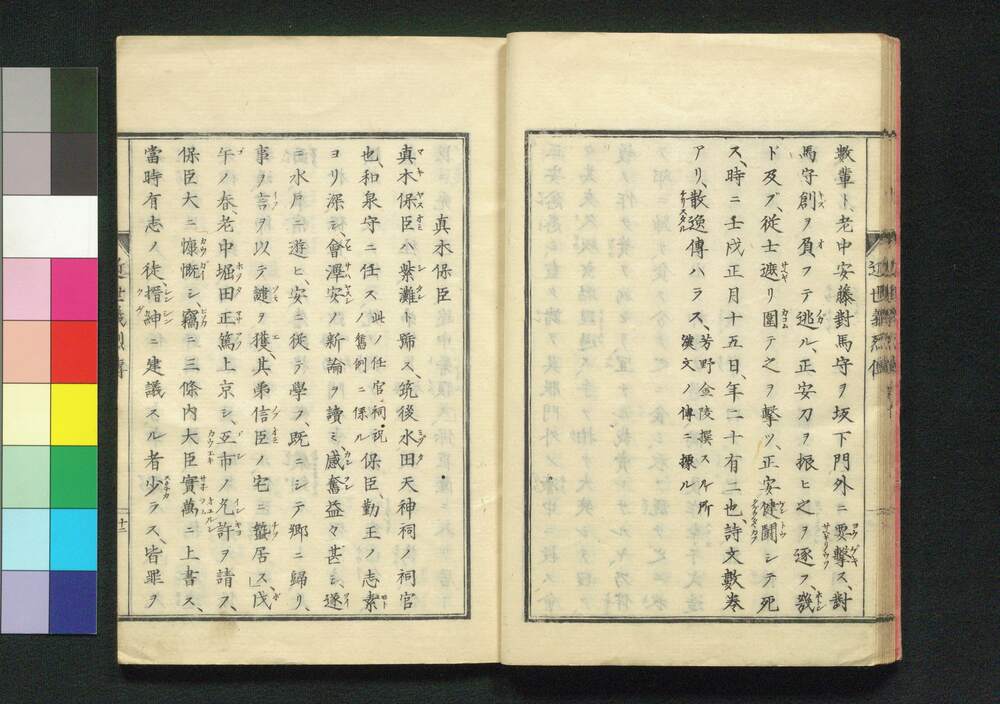 數輩ト老中安藤對馬守ヲ坂下門外ニ要擊ス、對
馬守創ヲ負フテ逃ル、正安刀ヲ振ヒ之ヲ逐フ、幾
ド及ブ、從士遮リ圍テ之ヲ擊ツ、正安健鬪シテ死
ス、時ニ壬戌正月十五日、年二十有二也、詩文數卷
アリ、散逸傳ハラス、芳野金陵撰スル所
漢文ノ傳ニ據ル
近世義烈傳
眞木保臣
眞木保臣小紫灘ト號ス、筑後水田天神祠ノ祠官
也、和泉守ニ任ス此ノ任官祠祝
ノ舊例ニ係ル保臣、勤王ノ志素
ヨリ深シ、會澤安ノ新論ヲ讀ミ、感奮益々甚シ、遂
ニ水戶ニ遊ヒ、安ニ從テ學フ、既ニシテ鄕ニ歸リ、
事ヲ言フヲ以テ譴ヲ獲、其弟信臣ノ宅ニ蟄居ス、戊
午ノ春、老中堀田正篤上京シ、互市ノ允許ヲ請フ、
保臣大ニ慷慨シ、竊ニ三條內大臣實萬ニ上書ス、
當時有志ノ徒、搢紳ニ建議スル者少ラス、皆罪ヲ
近世義烈傳
十二